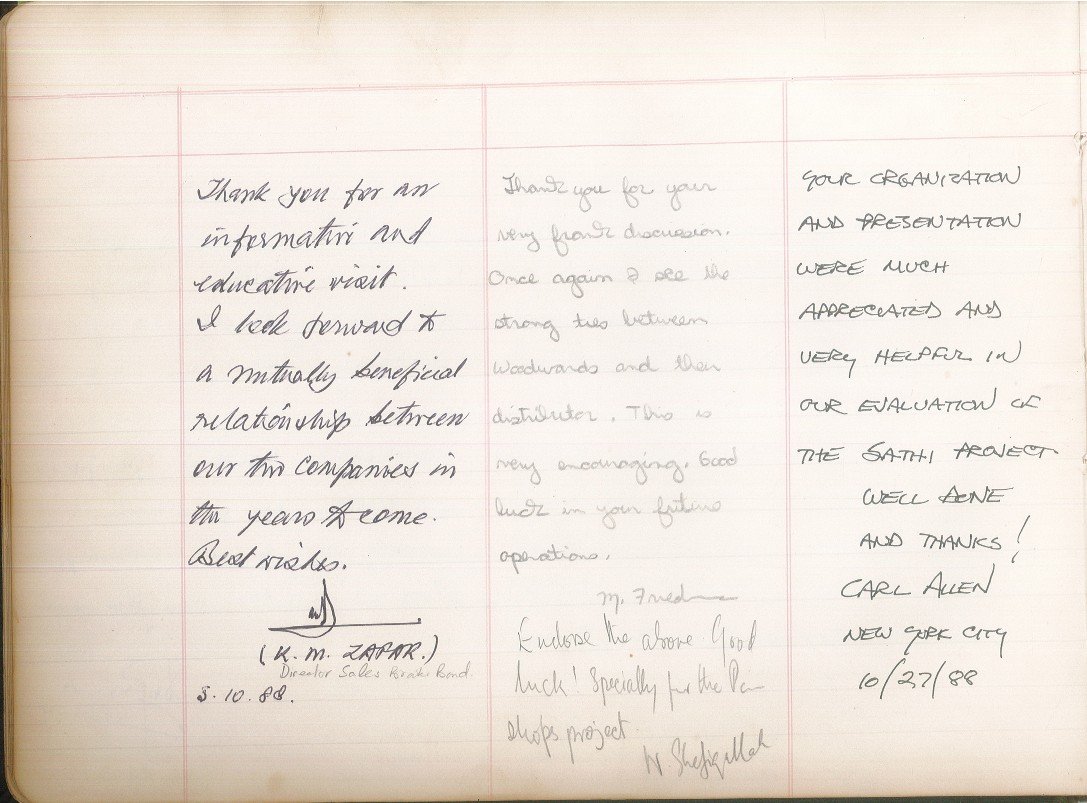 Thank you for an
informative and
educative visit.
I look forward to
a mutually beneficial
relationship between
our two companies in
the years to come.
Best wishes.
(K. M. ZAFAR.)
Director Sales Brooke Bond.
5.10.88.
Thank you for your
very frank discussion.
Once again I see the
strong ties between
Woodwards and their
distributor. This is
very encouraging. Good
luck in your future
operations.
M.
Endorse the above Good
luck! Specially for the Pan
shops project
Shafiqullah
YOUR ORGANIZATION
AND PRESENTATION
WERE MUCH
APPRECIATED AND
VERY HELPFUL IN
OUR EVALUATION OF
THE SATHI PROJECT
WELL DONE
AND THANKS!
CARL ALLEN
NEW YORK CITY
10/27/88